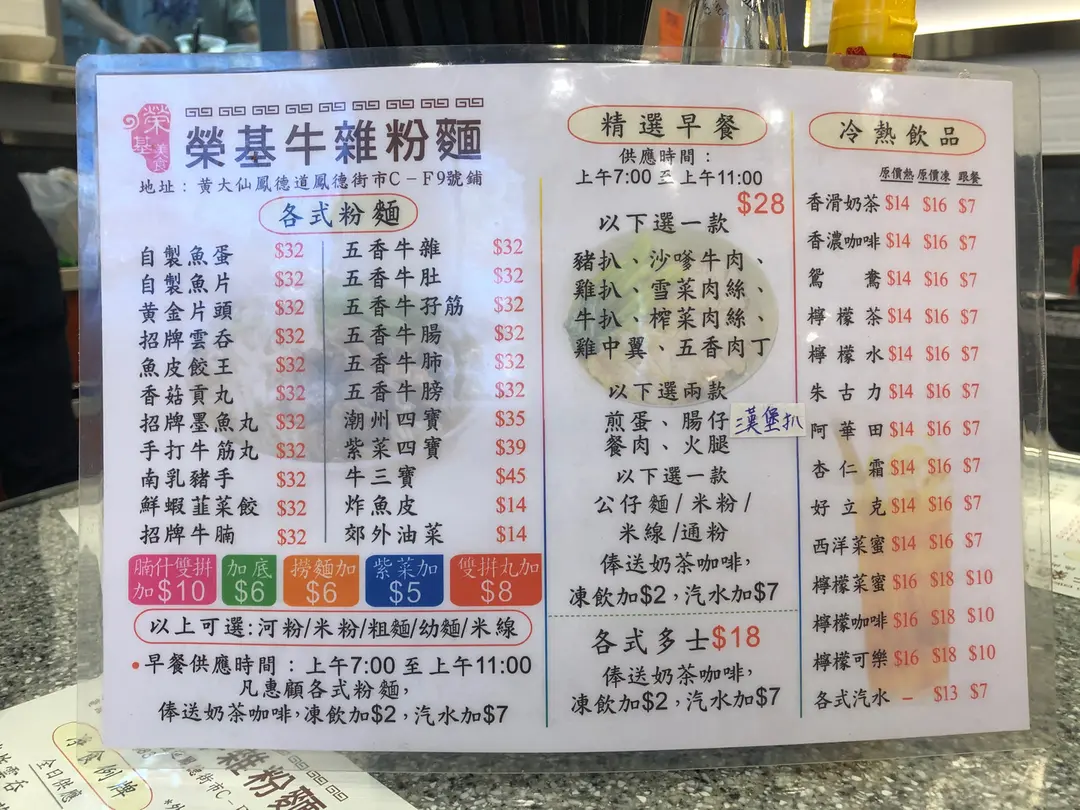 榮基美食
榮基牛雜粉麵
地址：黃大仙鳳德道鳳德街市C－F9號鋪
各式粉麵
自製魚蛋 $32
自製魚片 $32
黃金片頭 $32
招牌雲呑 $32
魚皮餃王 $32
香菇貢丸 $32
招牌墨魚丸 $32
手打牛筋丸 $32
南乳豬手 $32
鮮蝦韮菜餃 $32
招牌牛腩 $32
五香牛雜 $32
五香牛肚 $32
五香牛孖筋 $32
五香牛腸 $32
五香牛肺 $32
五香牛膀 $32
潮州四寶 $35
紫菜四寶 $39
牛三寶 $45
炸魚皮 $14
郊外油菜 $14
腩什雙拼
加$10
加底
$6
撈麵加
$6
紫菜加
$5
雙拼丸加
$8
以上可選:河粉/米粉/粗麵/幼麵/米線
•早餐供應時間：上午7:00 至上午11:00
凡惠顧各式粉麵，
俸送奶茶咖啡,凍飲加$2，汽水加$7
精選早餐
供應時間：
上午7:00 至上午11:00
$28
以下選一款
豬扒、沙嗲牛肉、
雞扒、雪菜肉絲、
牛扒、榨菜肉絲、
雞中翼、五香肉丁
以下選兩款
煎蛋、腸仔
漢堡扒
餐肉、火腿
以下選一款
公仔麵/米粉/
米線/通粉
俸送奶茶咖啡，
凍飲加$2，汽水加$7
各式多士$18
俸送奶茶咖啡，
凍飲加$2，汽水加$7
冷熱飲品
原價熱 原價凍 跟餐
香滑奶茶 $14 $16 $7
香濃咖啡 $14 $16 $7
鴛鴦 $14 $16 $7
檸檬茶 $14 $16 $7
檸檬水 $14 $16 $7
朱古力 $14 $16 $7
阿華田 $14 $16 $7
杏仁霜 $14 $16 $7
好立克 $14 $16 $7
西洋菜蜜 $14 $16 $7
檸檬菜蜜 $16 $18 $10
檸檬咖啡 $16 $18 $10
檸檬可樂 $16 $18 $10
各式汽水 － $13 $7
淨食例牌
全日供應
雜粉麵
街市C－F